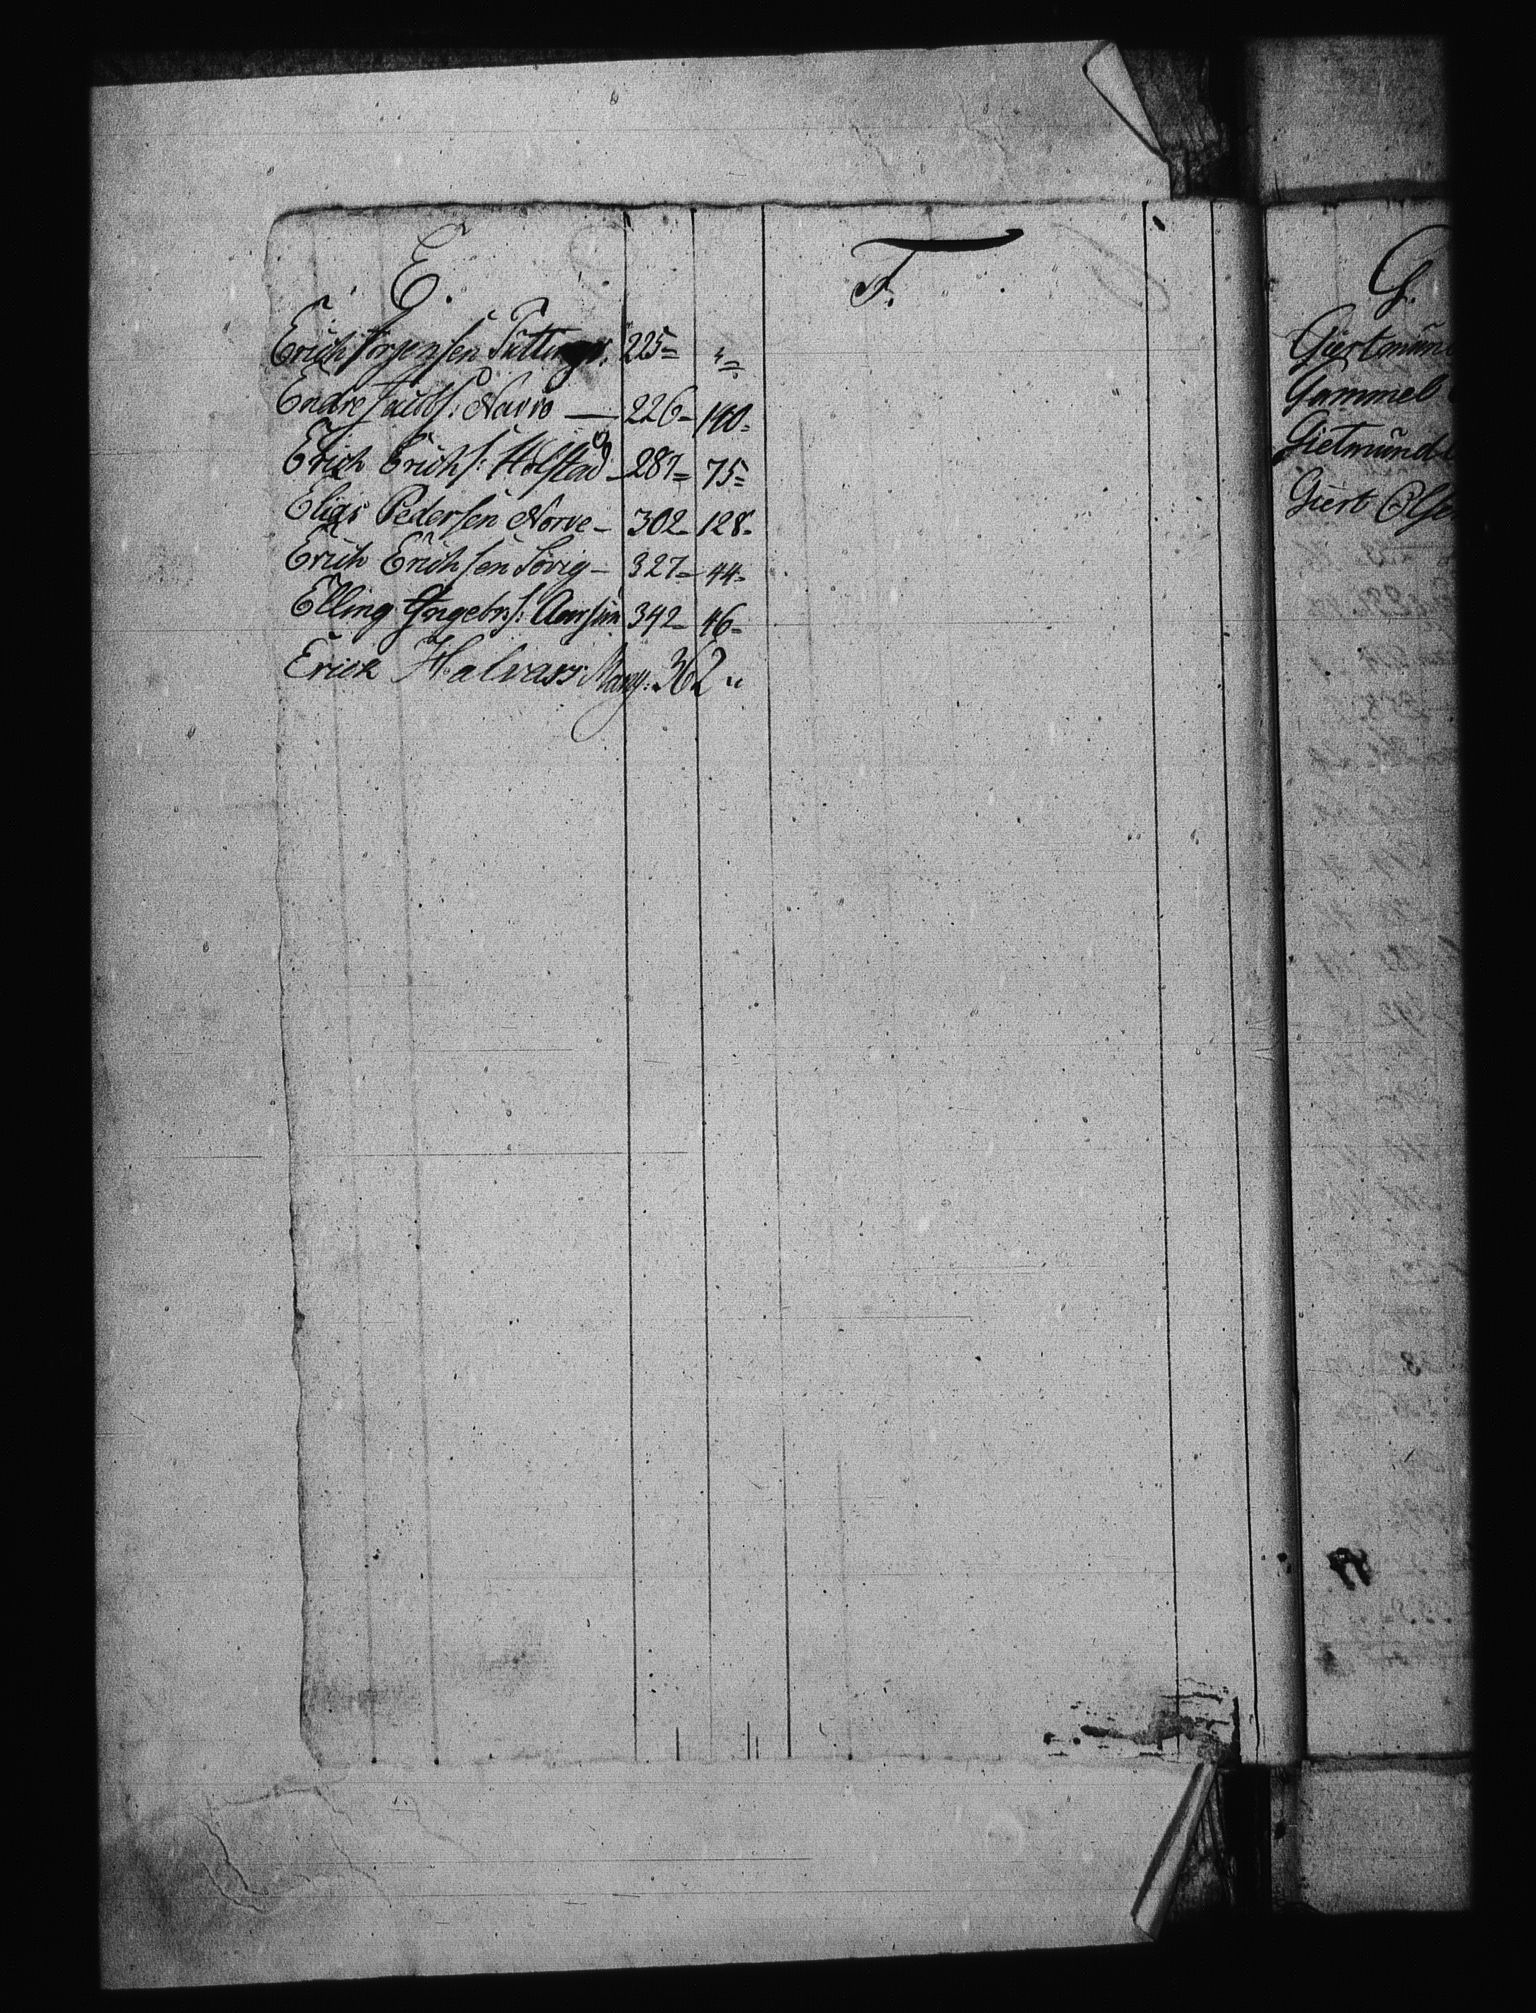 E.
Erich Jorgensen 225= "=
Endre Jacobs: Navro — 226= 140=
Erich Erichs: Holstad - 287= 75=
Elias Pedersen Norve - 302= 128=
Erich Erichsen Sövig - 327= 44=
Elling Ingebrs: 342= 46=
Erick Halvars: Mang: 362 "
F.
G.
Giertmün
Gammel
Gietmünd
Giert Olse